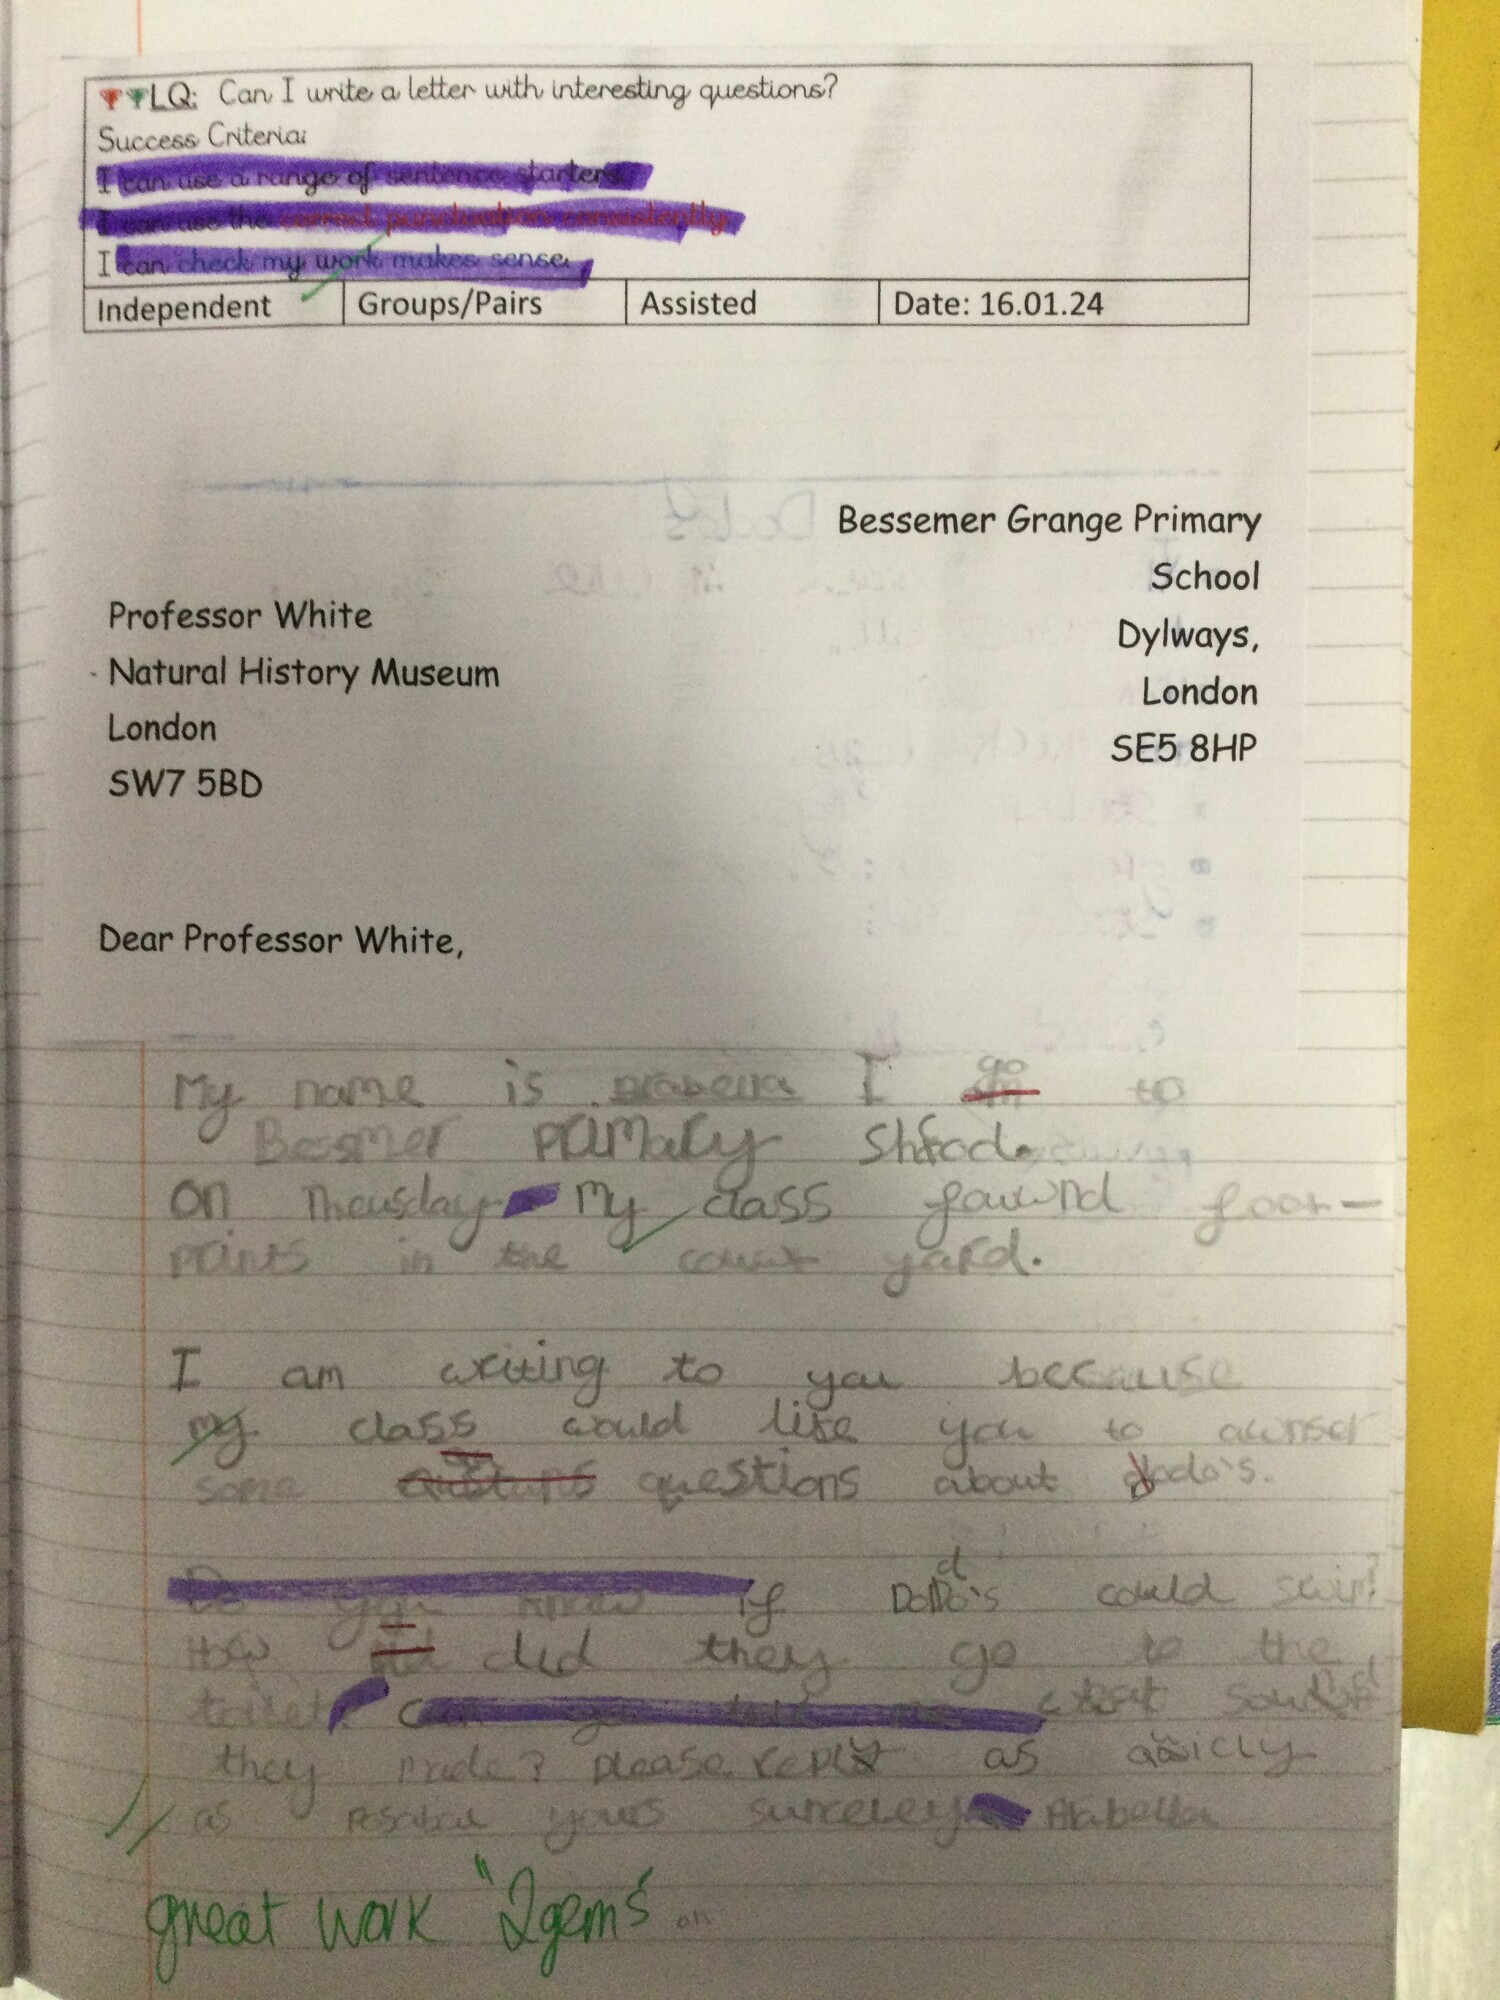 LQ: Can I write a letter with interesting questions?
Success Criteria:
I can use a range of sentence starters.
I can use the correct punctuation consistently.
I can check my work makes sense.
Independent Groups/Pairs Assisted Date: 16.01.24
Bessemer Grange Primary
School
Professor White
Dylways,
Natural History Museum
London
London
SE5 8HP
SW7 5BD
Dear Professor White,
My name is arabella I go to
Bessmer primary Shool.
on Theusday my class fouwnd foot-
prints in the court yard.
I am writing to you because
my class would like you to awnser
some questions about dodo's.
Do you know if DoDo's could swim?
How did they go to the
toilet can you tell me what
they made? please reply as
as yours Arabella
great work "2gems"